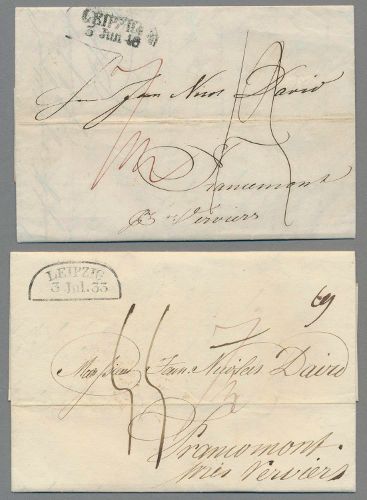 LEIPZIG
3 Jun
Jean Nicos David
Francomont
Verviers
LEIPZIG
3 Jul. 33
Monsieur Jean Nicolas David
Francomont
près Verviers